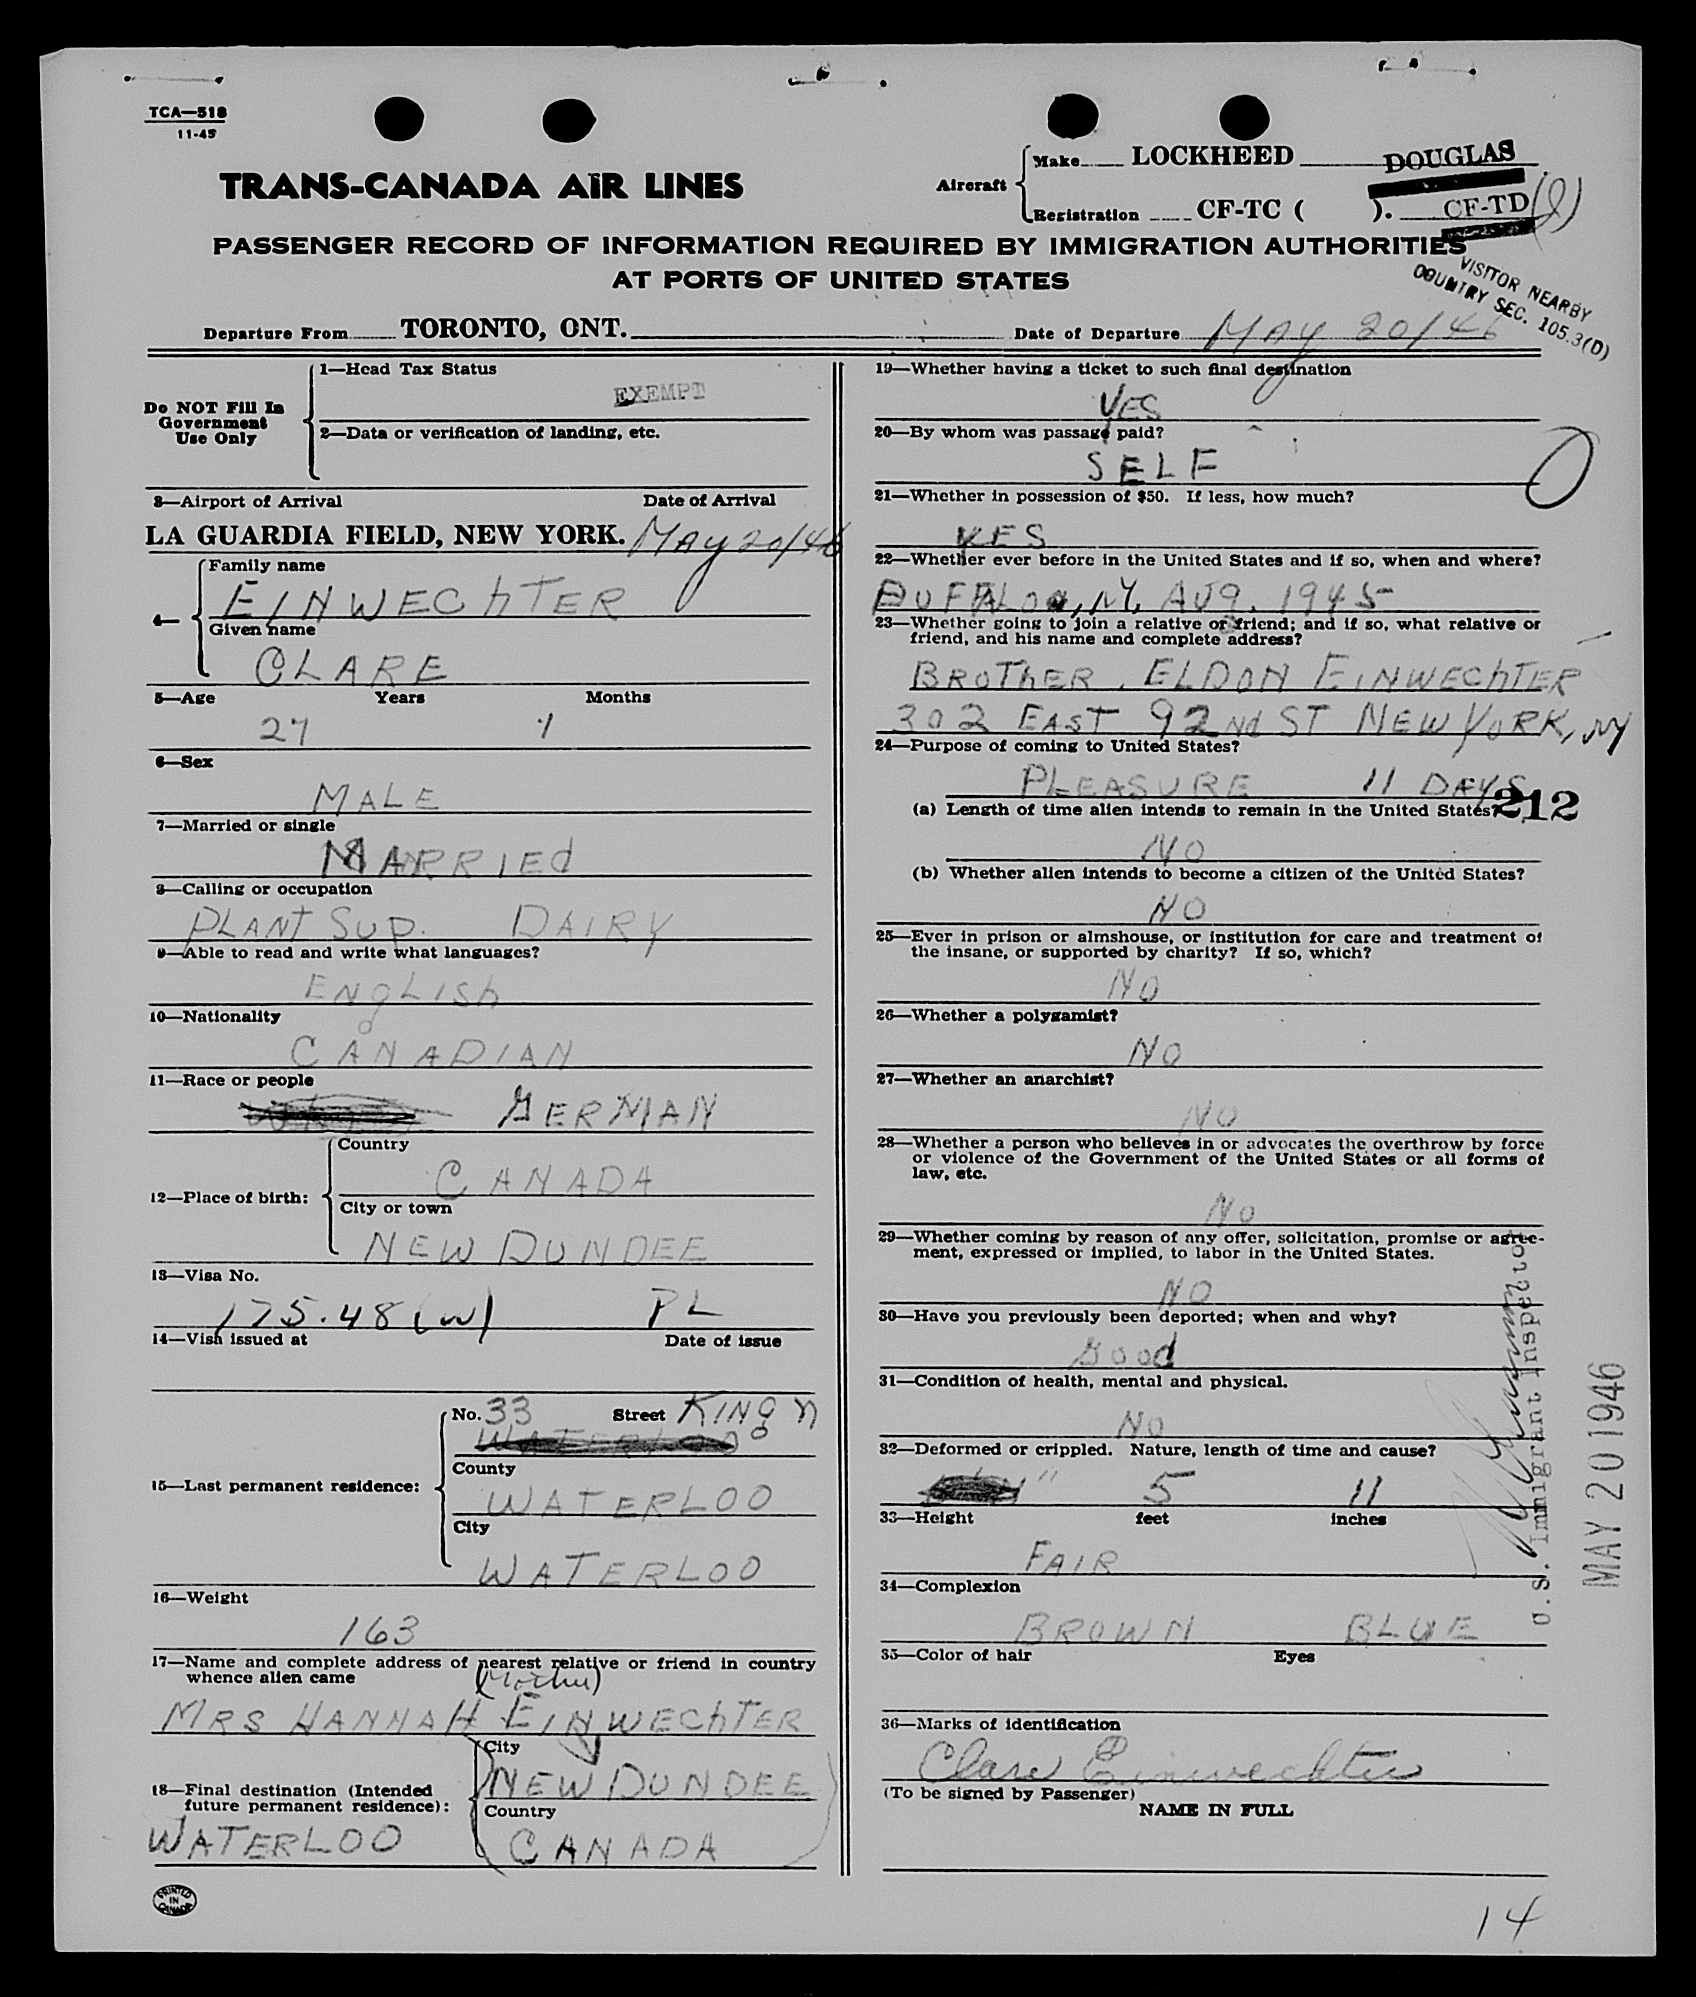 TCA—518
11-45
TRANS-CANADA AIR LINES
Aircraft
Make LOCKHEED DOUGLAS
Registration CF-TC ( ). CF-TD
PASSENGER RECORD OF INFORMATION REQUIRED BY IMMIGRATION AUTHORITIES
AT PORTS OF UNITED STATES
VISITOR NEARBY
COUNTRY SEC. 105.3(D)
Departure From TORONTO, ONT. Date of Departure MAY 20/46
Do NOT Fill In
Government
Use Only
1—Head Tax Status
EXEMPT
2—Data or verification of landing, etc.
3—Airport of Arrival Date of Arrival
LA GUARDIA FIELD, NEW YORK. MAY 20/46
4—
Family name
EINWECHTER
Given name
CLARE
5—Age Years Months
27 1
6—Sex
MALE
7—Married or single
MARRIEd
8—Calling or occupation
PLANT SUP. DAIRY
9—Able to read and write what languages?
ENgLISh
10—Nationality
CANADIAN
11—Race or people
GERMAN
12—Place of birth:
Country
CANADA
City or town
NEW DUNDEE
13—Visa No.
175.48 (W) PL
14—Visa issued at Date of issue
15—Last permanent residence:
No. 33 Street KING N
WATERLOO
County
WATERLOO
City
WATERLOO
16—Weight
163
17—Name and complete address of nearest relative or friend in country
whence alien came
(Mother)
MRS HANNAH EINWEChTER
18—Final destination (Intended
future permanent residence):
City
NEW DUNDEE
Country
WATERLOO CANADA
PRINTED
IN
CANADA
19—Whether having a ticket to such final destination
YES
20—By whom was passage paid?
SELF
21—Whether in possession of $50. If less, how much?
YES
22—Whether ever before in the United States and if so, when and where?
BUFFALO, NY, AUg. 1945
23—Whether going to join a relative or friend; and if so, what relative or
friend, and his name and complete address?
BROThER, ELDON EINWEChTER
302 EAST 92Nd ST NEW YORK, NY
24—Purpose of coming to United States?
PLEASURE 11 DAYS
(a) Length of time alien intends to remain in the United States?
212
NO
(b) Whether alien intends to become a citizen of the United States?
NO
25—Ever in prison or almshouse, or institution for care and treatment of
the insane, or supported by charity? If so, which?
NO
26—Whether a polygamist?
NO
27—Whether an anarchist?
NO
28—Whether a person who believes in or advocates the overthrow by force
or violence of the Government of the United States or all forms of
law, etc.
NO
29—Whether coming by reason of any offer, solicitation, promise or agree-
ment, expressed or implied, to labor in the United States.
NO
30—Have you previously been deported; when and why?
Good
31—Condition of health, mental and physical.
NO
32—Deformed or crippled. Nature, length of time and cause?
5 11
33—Height feet inches
FAIR
34—Complexion
BROWN BLUE
35—Color of hair Eyes
36—Marks of identification
Clare Einwechter
(To be signed by Passenger)
NAME IN FULL
U.S. Immigrant Inspector
MAY 20 1946
14